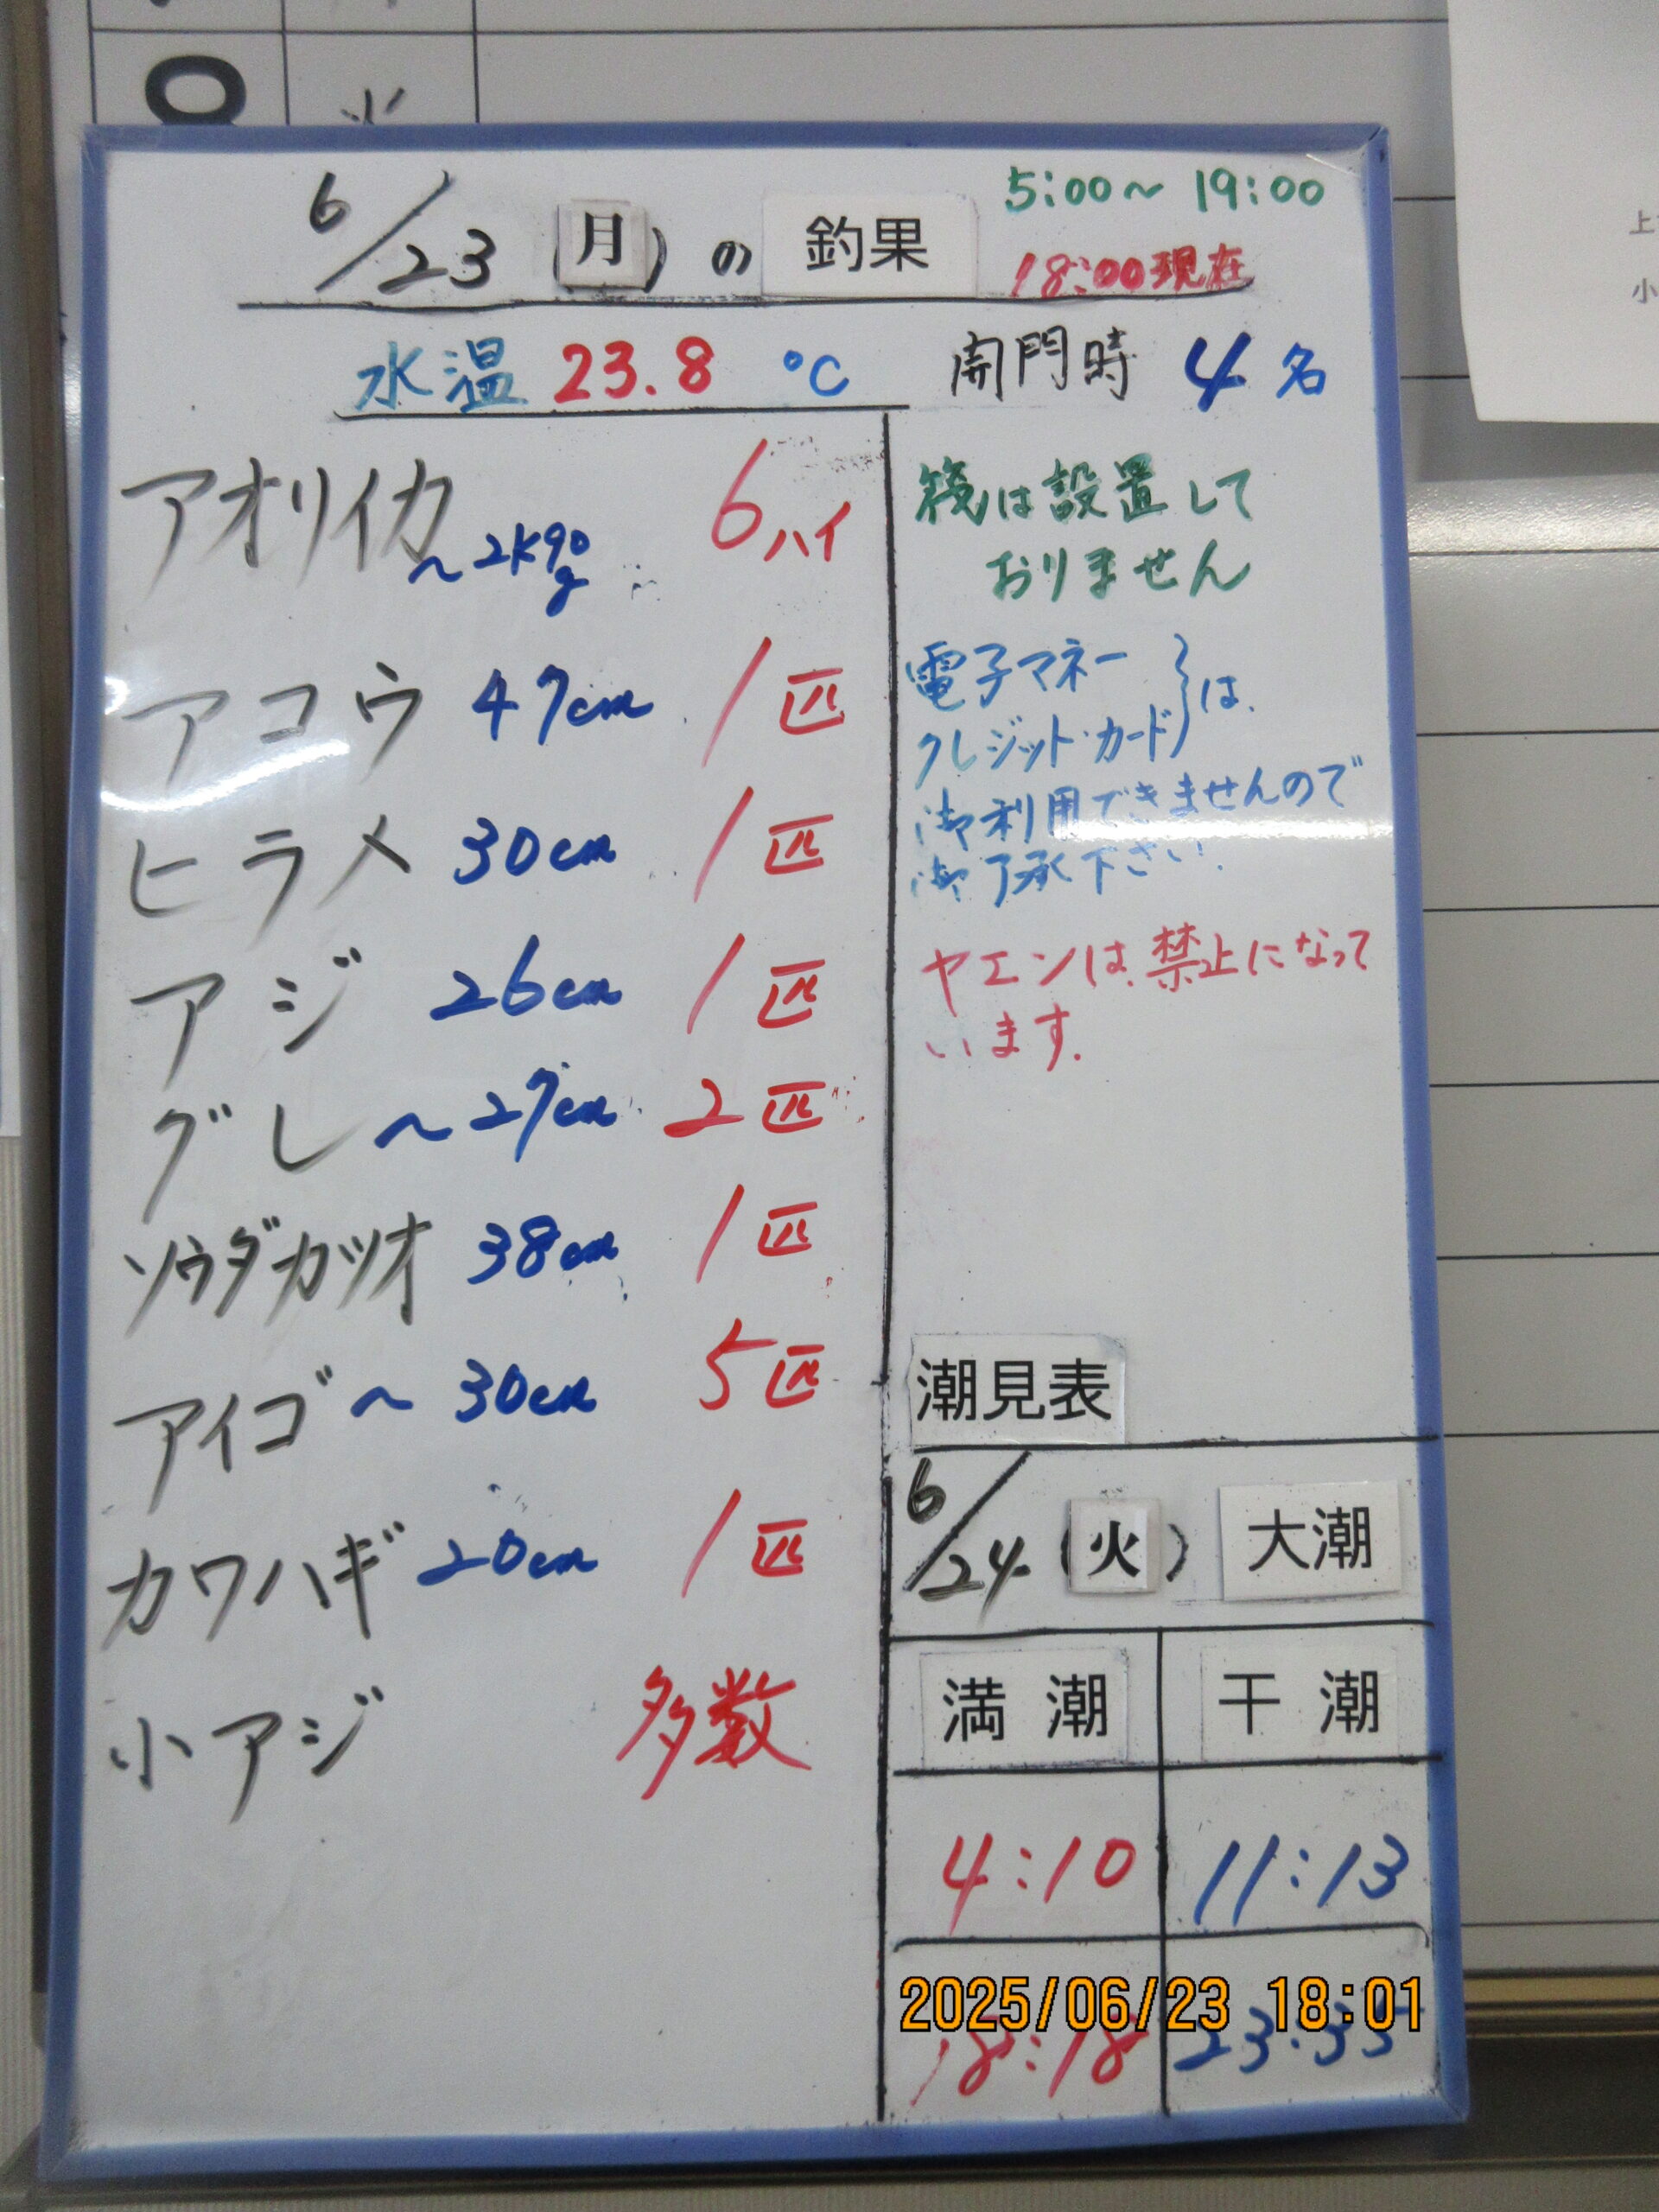 6/23 (月) の 釣果
5:00～19:00
18:00現在
水温 23.8 ℃
開門時 4名
アオリイカ ～2k90g 6ハイ
アコウ 47cm 1匹
ヒラメ 30cm 1匹
アジ 26cm 1匹
グレ ～27cm 2匹
ソウダカツオ 38cm 1匹
アイゴ ～30cm 5匹
カワハギ 20cm 1匹
小アジ 多数
筏は設置して
おりません
電子マネー
クレジット・カード}は、
御利用できませんので
御了承下さい.
ヤエンは、禁止になって
います.
潮見表
6/24 (火) 大潮
満潮 干潮
4:10 11:13
18:18 23:35
2025/06/23 18:01
上
小